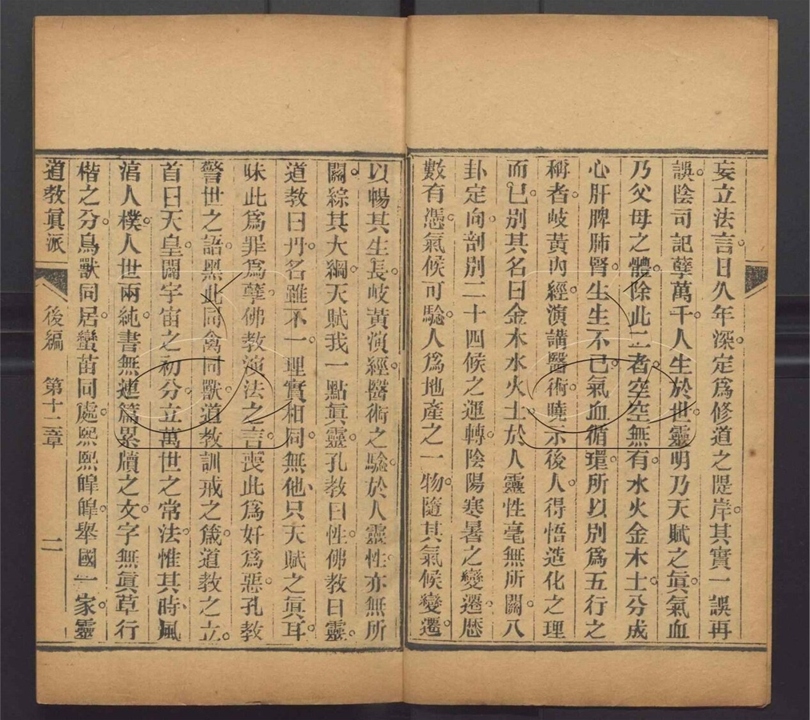 妄立法言。日久年深。定爲修道之隄岸。其實一誤再
誤。陰司記孽萬千。人生於世。靈明乃天賦之眞。氣血
乃父母之體。除此二者。空空無有。水火金木土。分成
心肝脾肺腎。生生不已。氣血循環。所以別爲五行之
稱者。岐黃內經。演講醫術。曉示後人。得悟造化之理
而已。別其名曰金木水火土。於人靈性。毫無所關。八
卦定向。剖別二十四候之運轉。陰陽寒暑之變遷。歷
數有憑。氣候可驗。人爲地產之一物。隨其氣候變遷。
以暢其生長。岐黃演經。醫術之驗。於人靈性。亦無所
關。綜其大綱。天賦我一點眞靈。孔教曰性。佛教曰靈。
道教曰丹。名雖不一。理實相同。無他。只天賦之眞耳。
昧此爲罪爲孽。佛教演法之言。喪此爲奸爲惡。孔教
警世之語。黑此同禽同獸。道教訓戒之箴。道教之立。
首曰天皇。闢宇宙之初分。立萬世之常法。惟其時。風
湻人樸。人世兩純。書無連篇累牘之文。字無眞草行
楷之分。鳥獸同居。蠻苗同處。熙熙皡皡。舉國一家。靈
道教眞派 後編 第十二章 二